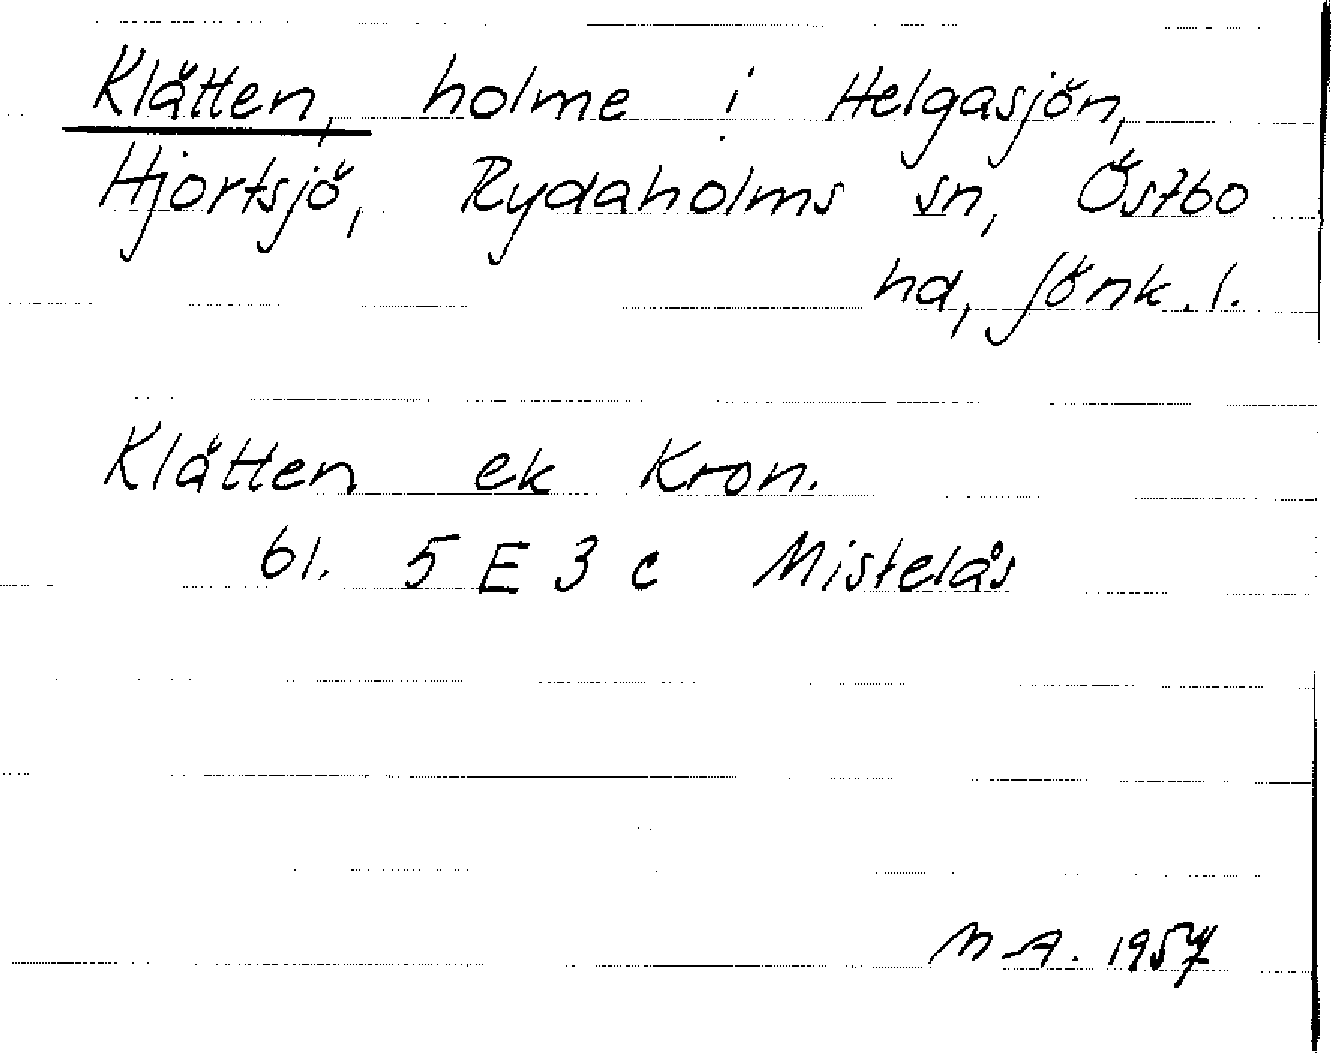 Klätten, holme i Helgasjön,
Hjortsjö, Rydaholms sn, Östbo
hd, Jönk. l.
Klätten ek Kron.
bl. 5 E 3 c Mistelås
M A. 1957